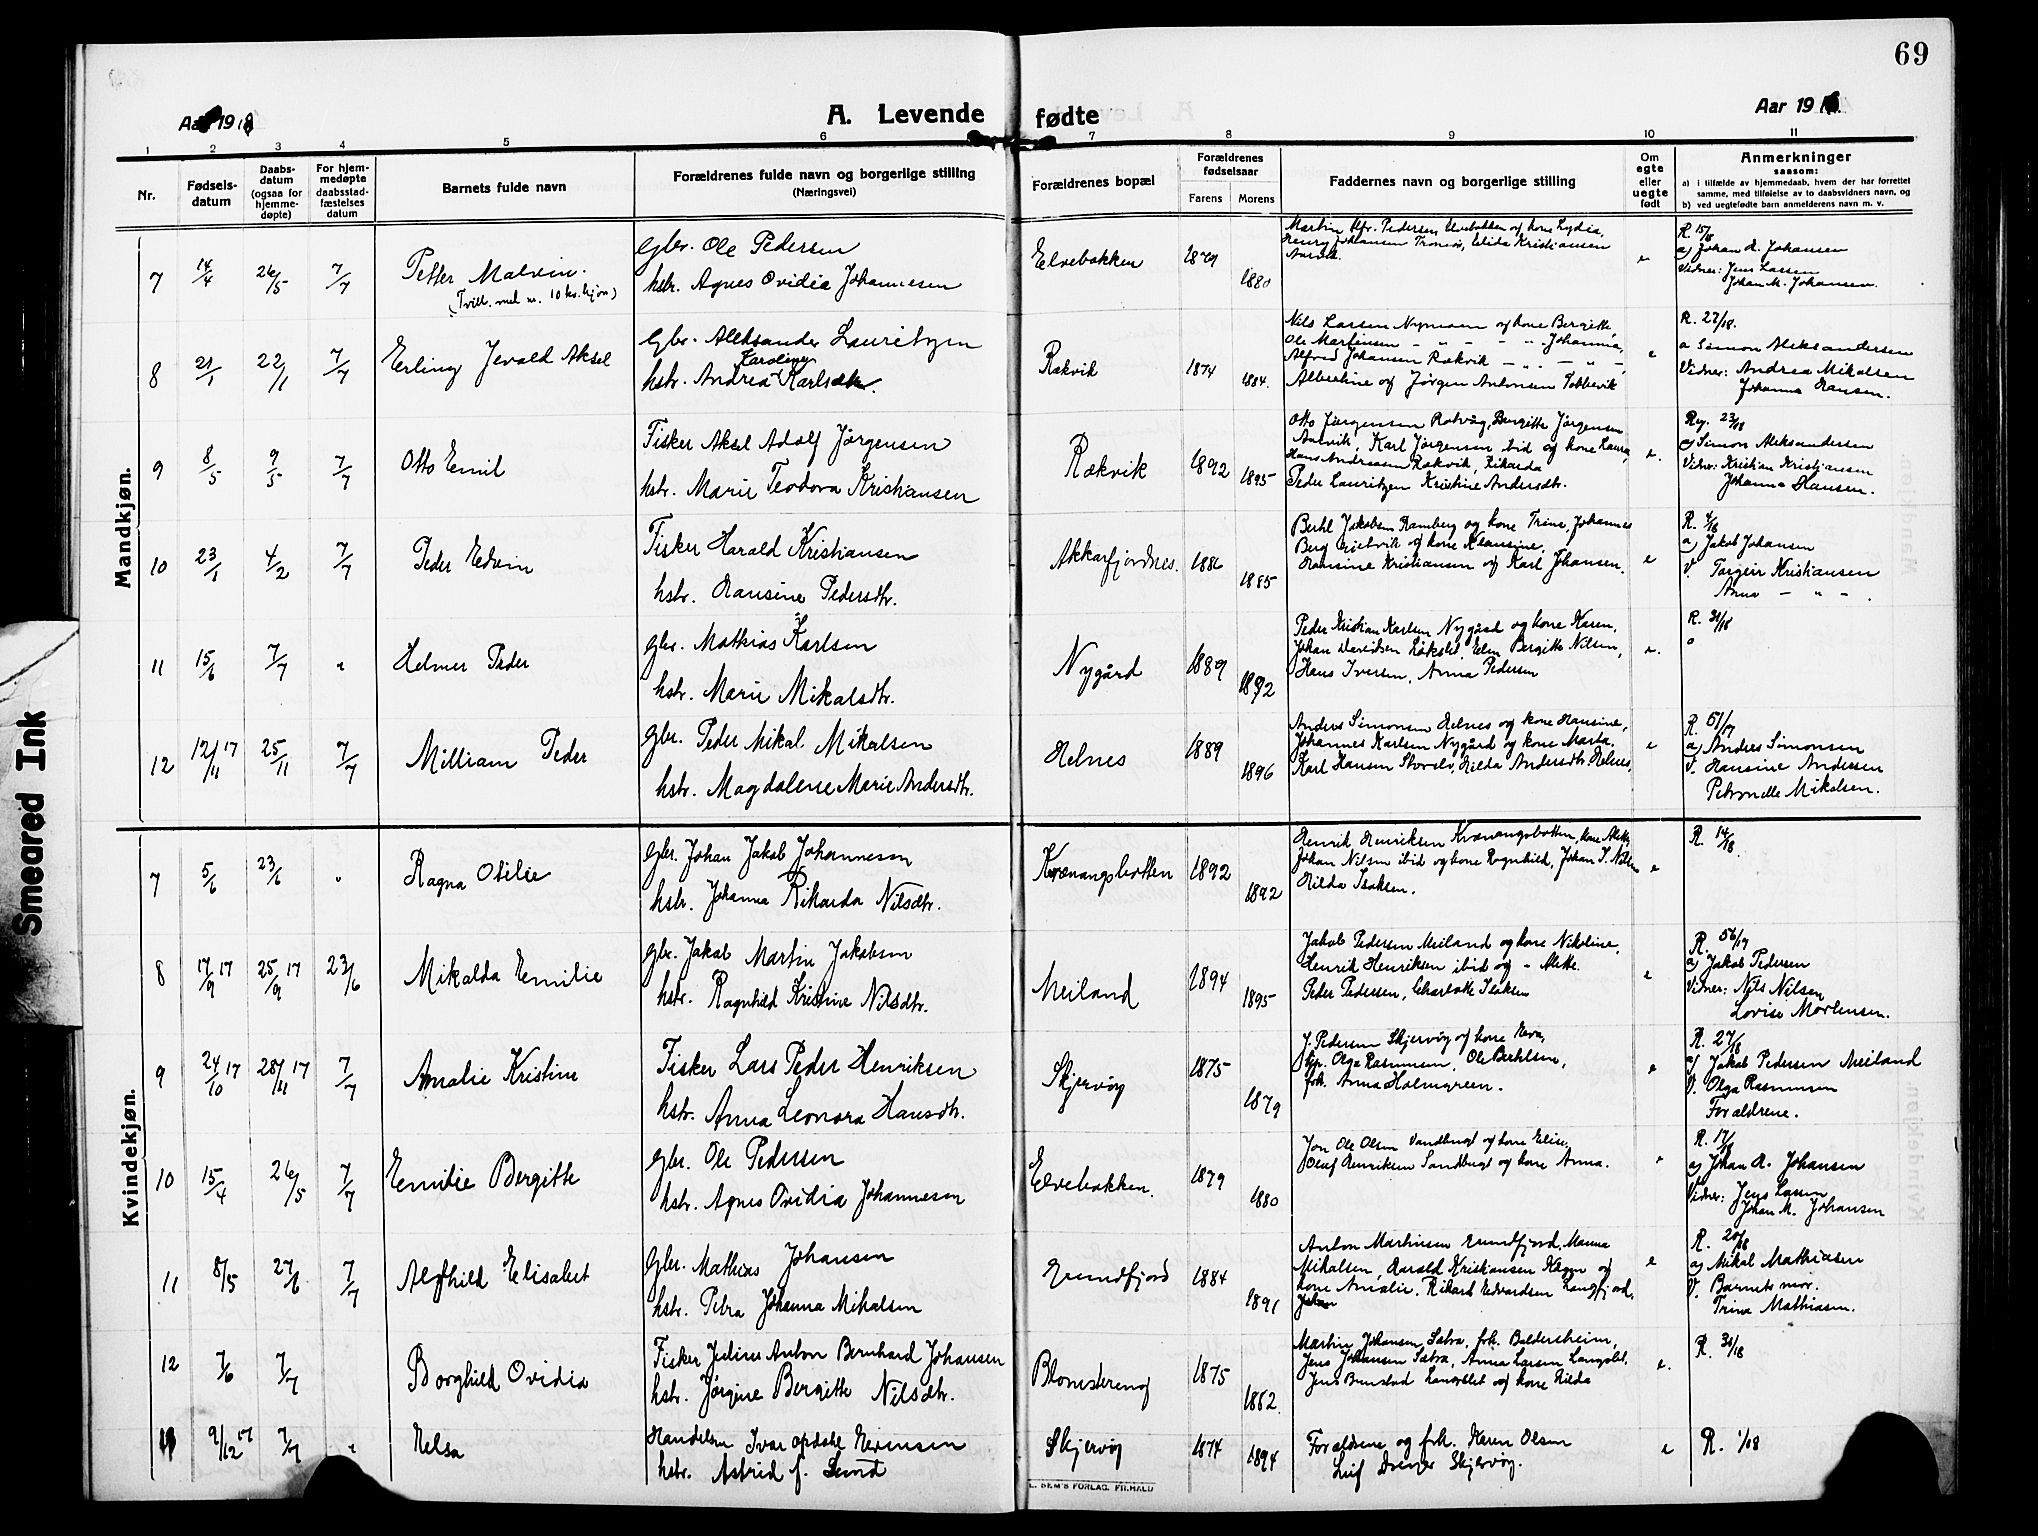 69
A. Levende fødte
Aar 1918
Aar 191
1 2 3 4 5 6 7 8 9 10 11
Nr.
Fødsels-datum
Daabs-datum (ogsaa for hjemme-døpte)
For hjem-medøpte daabsstad-fæstelses datum
Barnets fulde navn
Forældrenes fulde navn og borgerlige stilling (Næringsvei)
Forældrenes bopæl
Forældrenes fødselsaar
Farens Morens
Faddernes navn og borgerlige stilling
Om egte eller uegte født
Anmerkninger
saasom:
a) i tilfælde av hjemmedaab, hvem der har forrettet samme, med tilføielse av to daabsvidners navn, og
b) ved uegtefødte barn anmelderens navn m. v.
Mandkjøn.
7 14/4 26/5 7/7 Petter Malvin. gbr. Ole Pedersen Elvebakken 1879
(Tvill. med n. 10 kv.kjøn) hstr. Agnes Ovidia Johannesen 1880
Henry Johansen Tromsø, Kristiansen
R. 15/18
a) Johan A. Johansen
Vidner: Jens Lassen
Johan M. Johansen.
8 21/1 22/1 7/7 Erling Jevald Aksel gbr. Aleksander Lauritzen Rakvik 1874
Karoline
hstr. Andrea Karlsdtr. 1884.
Nils Larsen Nymoen og kone Bergitte,
Ole Martinsen - " - " - " Johanna,
Alfred Johansen Rakvik
Albertine og Jørgen Antonsen Tobbevik
R. 27/18.
a Simon Aleksandersen
Vidner: Andrea Mikalsen
Johanna Hansen.
9 8/5 9/5 7/7 Otto Emil Fisker Aksel Adolf Jørgensen Rakvik 1892
hstr. Marie Teodora Kristiansen 1895
Otto Jørgensen Rotvåg, Bergitte Jørgensen
Karl Jørgensen ibid og kone Laura,
Hans Andreassen Rakvik, Rikarda
Peder Lauritzen Kristine Andersdtr.
Reg. 23/18
a) Simon Aleksandersen
Vidner: Kristian Kristiansen
Johanna Hansen.
10 23/1 4/2 7/7 Peder Edvin Fisker Harald Kristiansen Akkarfjordnes. 1886
hstr. Hansine Pedersdtr. 1885
Bertel Jakobsen Ramberg og kone Trine, Johannes
Berg og kone Klausine,
Hansine Kristiansen og Karl Johansen.
R. 4/18
a) Jakob Johansen
V. Torgeir Kristiansen
Anna - " - .
11 15/6 7/7 " Helmer Peder gbr. Mathias Karlsen Nygård 1889
hstr. Marie Mikalsdtr. 1892
Peder Kristian Karlsen Nygård og kone Karen,
Johan Davidsen Låkslet, Elen Bergitte Nilsen,
Hans Iversen, Anna Pedersen
R. 31/18
12 12/11 17 25/11 7/7 Milliam Peder gbr. Peder Mikal Mikalsen Helnes 1889
hstr. Magdalene Marie Andersdtr. 1896
Anders Simonsen Helnes og kone Hansine,
Johannes Karlsen Nygård og kone Marta,
Karl Hansen Storslv, Hilda Andersdtr. Helnes,
R. 51/17
a) Andreas Simonsen
V. Hansine Andersen
Petronelle Mikalsen.
Kvindekjøn.
7 5/6 23/6 " Ragna Otilie gbr. Johan Jakob Johannesen Kvænangsbotten 1892
hstr. Johanna Rikarda Nilsdtr. 1892
Henrik Henriksen Kvænangsbotten, kone Alette,
Johan Nilsen ibid og kone Ragnhild, Johan I. Nilsen
Hilda Isaksen.
R. 14/18.
8 17/9 17 25/9 17 23/6 Mikalda Emilie gbr. Jakob Martin Jakobsen Meiland 1894
hstr. Ragnhild Kristine Nilsdtr. 1895
Jakob Pedersen Meiland og kone Nikoline,
Henrik Henriksen ibid og - Alette.
Peder Pedersen, Charlotte Isaksen
R. 56/17
a) Jakob Pedersen
Vidner: Nils Nilsen
Lovise Mortensen.
9 24/10 17 28/11 17 7/7 Amalie Kristine Fisker Lars Peder Henriksen Skjervøy 1875
hstr. Anna Leonora Hansdtr. 1879
J. Pedersen Skjervøy og kone Eva,
Olga Rasmussen, Ole Berthelsen,
frk. Anna Holmgreen.
R. 27/18
a) Jakob Pedersen Meiland
V. Olga Rasmussen
Forældrene.
10 15/4 26/5 7/7 Emilie Bergitte gbr. Ole Pedersen Elvebakken. 1879
hstr. Agnes Ovidia Johannesen 1880
Jon Ole Olsen Sandbugt og kone Elise,
Oluf Henriksen Sandbugt og kone Anna.
R. 17/18
a) Johan A. Johansen
Vidner: Jens Lassen
Johan M. Johansen
11 8/5 27/6 7/7 Alfhild Elisabet gbr. Mathias Johansen Grundfjord 1884
hstr. Petra Johanna Mikalsen 1891
Anton Martinsen Grundfjord, Manna
Mikalsen, Harald Kristiansen Hågen og
kone Amalie. Rikard Edvardsen Langfjord,
R. 20/18
a) Mikal Mathiasen
V. Barnets mor.
Trine Mathiasen.
12 7/6 7/7 Borghild Ovidia Fisker Julius Anton Bernhard Johansen Blomstereng 1875
hstr. Jørgine Bergitte Nilsdtr. 1882
Martin Johansen Sætra, frk. Baldersheim,
Jens Johansen Sætra, Anna Larsen Langslet,
Jens Benstad Langslet og kone Hilda
R. 30/18
9/12 17 7/7 " Elsa Handelsm Ivar Opdahl Evensen Skjervøy 1874
hstr. Astrid f. Lund 1894
Forældrene og frk. Karen Olsen
Leif Dreyer Skjervøy.
R. 1/18
E. SEM'S FORLAG. FR.HALD
Smeared Ink